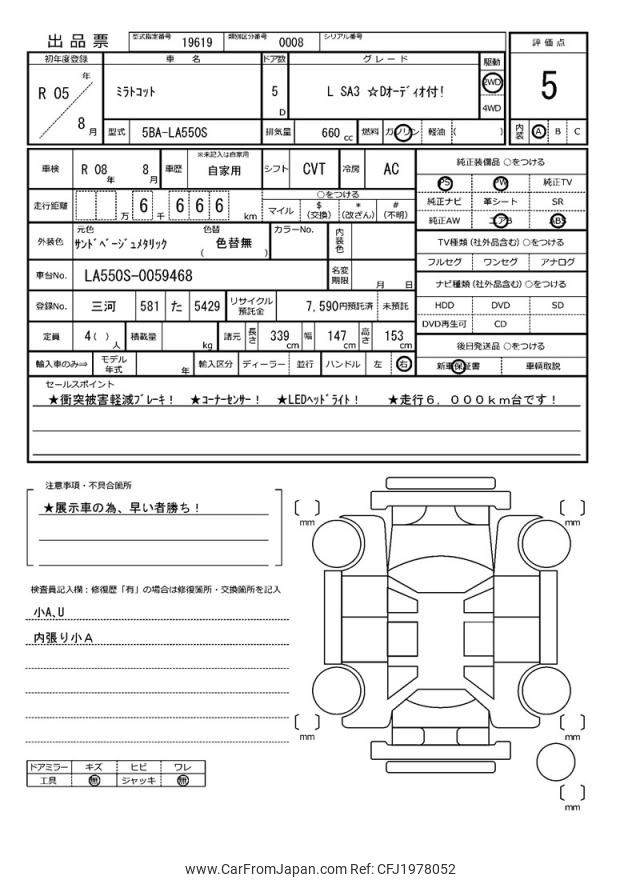 出品票 型式指定番号 19619 類別区分番号 0008 シリアル番号
初年度登録 車名 ドア数 グレード 駆動 評価点
R 05 年 8 月 ミラトコット 5 D L SA3 ☆Dオーディオ付! 2WD 4WD 5
型式 5BA-LA550S 排気量 660 cc 燃料 ガソリン 軽油 ( ) 内装 A B C
車検 R 08 年 8 月 車歴 ※未記入は自家用 自家用 シフト CVT 冷房 AC 純正装備品 ○をつける
PS PW 純正TV
走行距離 万 6 千 6 6 6 km ○をつける マイル $(交換) *(改ざん) #(不明) 純正ナビ 革シート SR
純正AW エアB ABS
外装色 元色 サンドベージュメタリック 色替 ( 色替無 ) カラーNo. 内装色 TV種類 (社外品含む) ○をつける
フルセグ ワンセグ アナログ
車台No. LA550S-0059468 名変期限 月 日 ナビ種類 (社外品含む) ○をつける
登録No. 三河 581 た 5429 リサイクル預託金 7,590円預託済 未預託 HDD DVD SD
DVD再生可 CD
定員 4( ) 人 積載量 kg 諸元 長さ 339 cm 幅 147 cm 高さ 153 cm 後日発送品 ○をつける
輸入車のみ⇒ モデル年式 年 輸入区分 ディーラー 並行 ハンドル 左 右 新車保証書 車輌取説
セールスポイント
★衝突被害軽減ブレーキ! ★コーナーセンサー! ★LEDヘッドライト! ★走行6,000km台です!
注意事項・不具合箇所
★展示車の為、早い者勝ち!
検査員記入欄:修復歴「有」の場合は修復箇所・交換箇所を記入
小A,U
内張り小A
ドアミラー キズ ヒビ ワレ
工具 無 ジャッキ 無
mm
mm
mm
mm
mm
www.CarFromJapan.com Ref: CFJ1978052